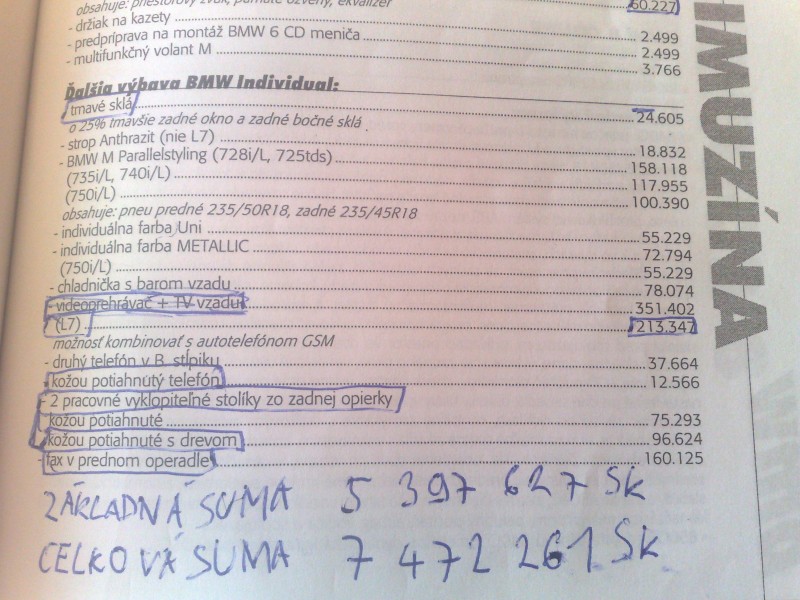 obsahuje: priestorový zvuk, pamäte ozveny, ekvalizér 60.227
- držiak na kazety 2.499
- predpríprava na montáž BMW 6 CD meniča 2.499
- multifunkčný volant M 3.766
Ďalšia výbava BMW Individual:
tmavé sklá 24.605
o 25% tmavšie zadné okno a zadné bočné sklá
- strop Anthrazit (nie L7) 18.832
- BMW M Parallelstyling (728i/L, 725tds) 158.118
(735i/L, 740i/L) 117.955
(750i/L) 100.390
obsahuje: pneu predné 235/50R18, zadné 235/45R18
- individuálna farba Uni 55.229
- individuálna farba METALLIC 72.794
(750i/L) 55.229
- chladnička s barom vzadu 78.074
- videoprehrávač + TV vzadu 351.402
(L7) 213.347
možnosť kombinovať s autotelefónom GSM
- druhý telefón v B. stĺpiku 37.664
kožou potiahnutý telefón 12.566
- 2 pracovné vyklopiteľné stolíky zo zadnej opierky
kožou potiahnuté 75.293
kožou potiahnuté s drevom 96.624
- fax v prednom operadle 160.125
ZÁKLADNÁ SUMA 5 397 627 Sk
CELKOVÁ SUMA 7 472 261 Sk
IMUZÍNA